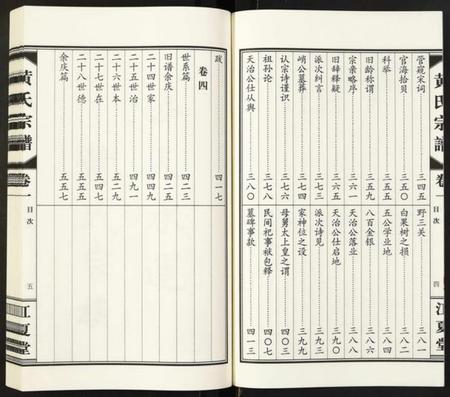 黄氏宗谱
卷一
目次
四
江夏堂
管窥宋词 三四五
官海拾贝 三五〇
科举 三五五
旧龄称谓 三五九
宗亲略序 三六一
旧辞释疑 三六五
派次纠言 三七一
峭公墓葬 三七四
认宗诗谨识 三七六
祖孙论
天治公仕从与 三八〇
野三关 三八一
白果树之损 三八二
五公学业地 三八四
八百金银 三八六
天治公落业 三八八
天治公仕启地 三九〇
派次诗见 三九三
家神位之设 三九九
母舅太上皇之谓 四〇三
民间祀事袱包释 四〇七
墓碑事款 四一三
跋 四一七
卷四
世系篇 四二三
旧谱余庆 四二五
二十四世家 四四九
二十五世治 四九一
二十六世本 五二九
二十七世在 五四七
二十八世德 五五六
余庆篇 五五七
黄氏宗谱
卷一
目次
五
江夏堂